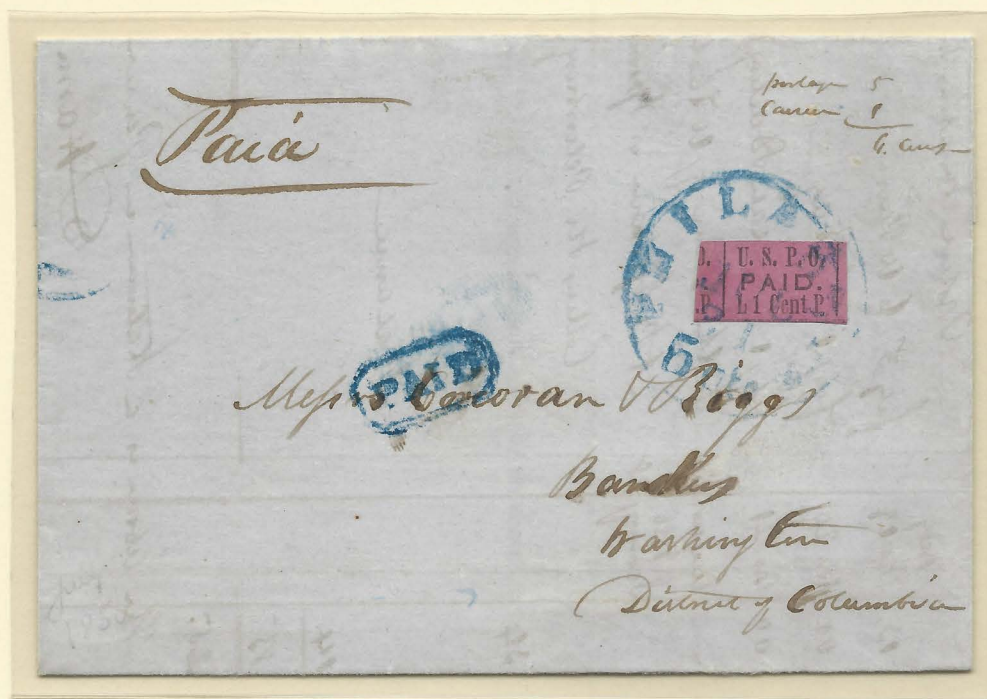 Paid
postage 5
Carrier 1
6. cents
PHILA
5
D. U. S. P. O.
PAID.
.P L 1 Cent. P.
PAID
Messrs Corcoran & Riggs
Bankers
Washington
District of Columbia